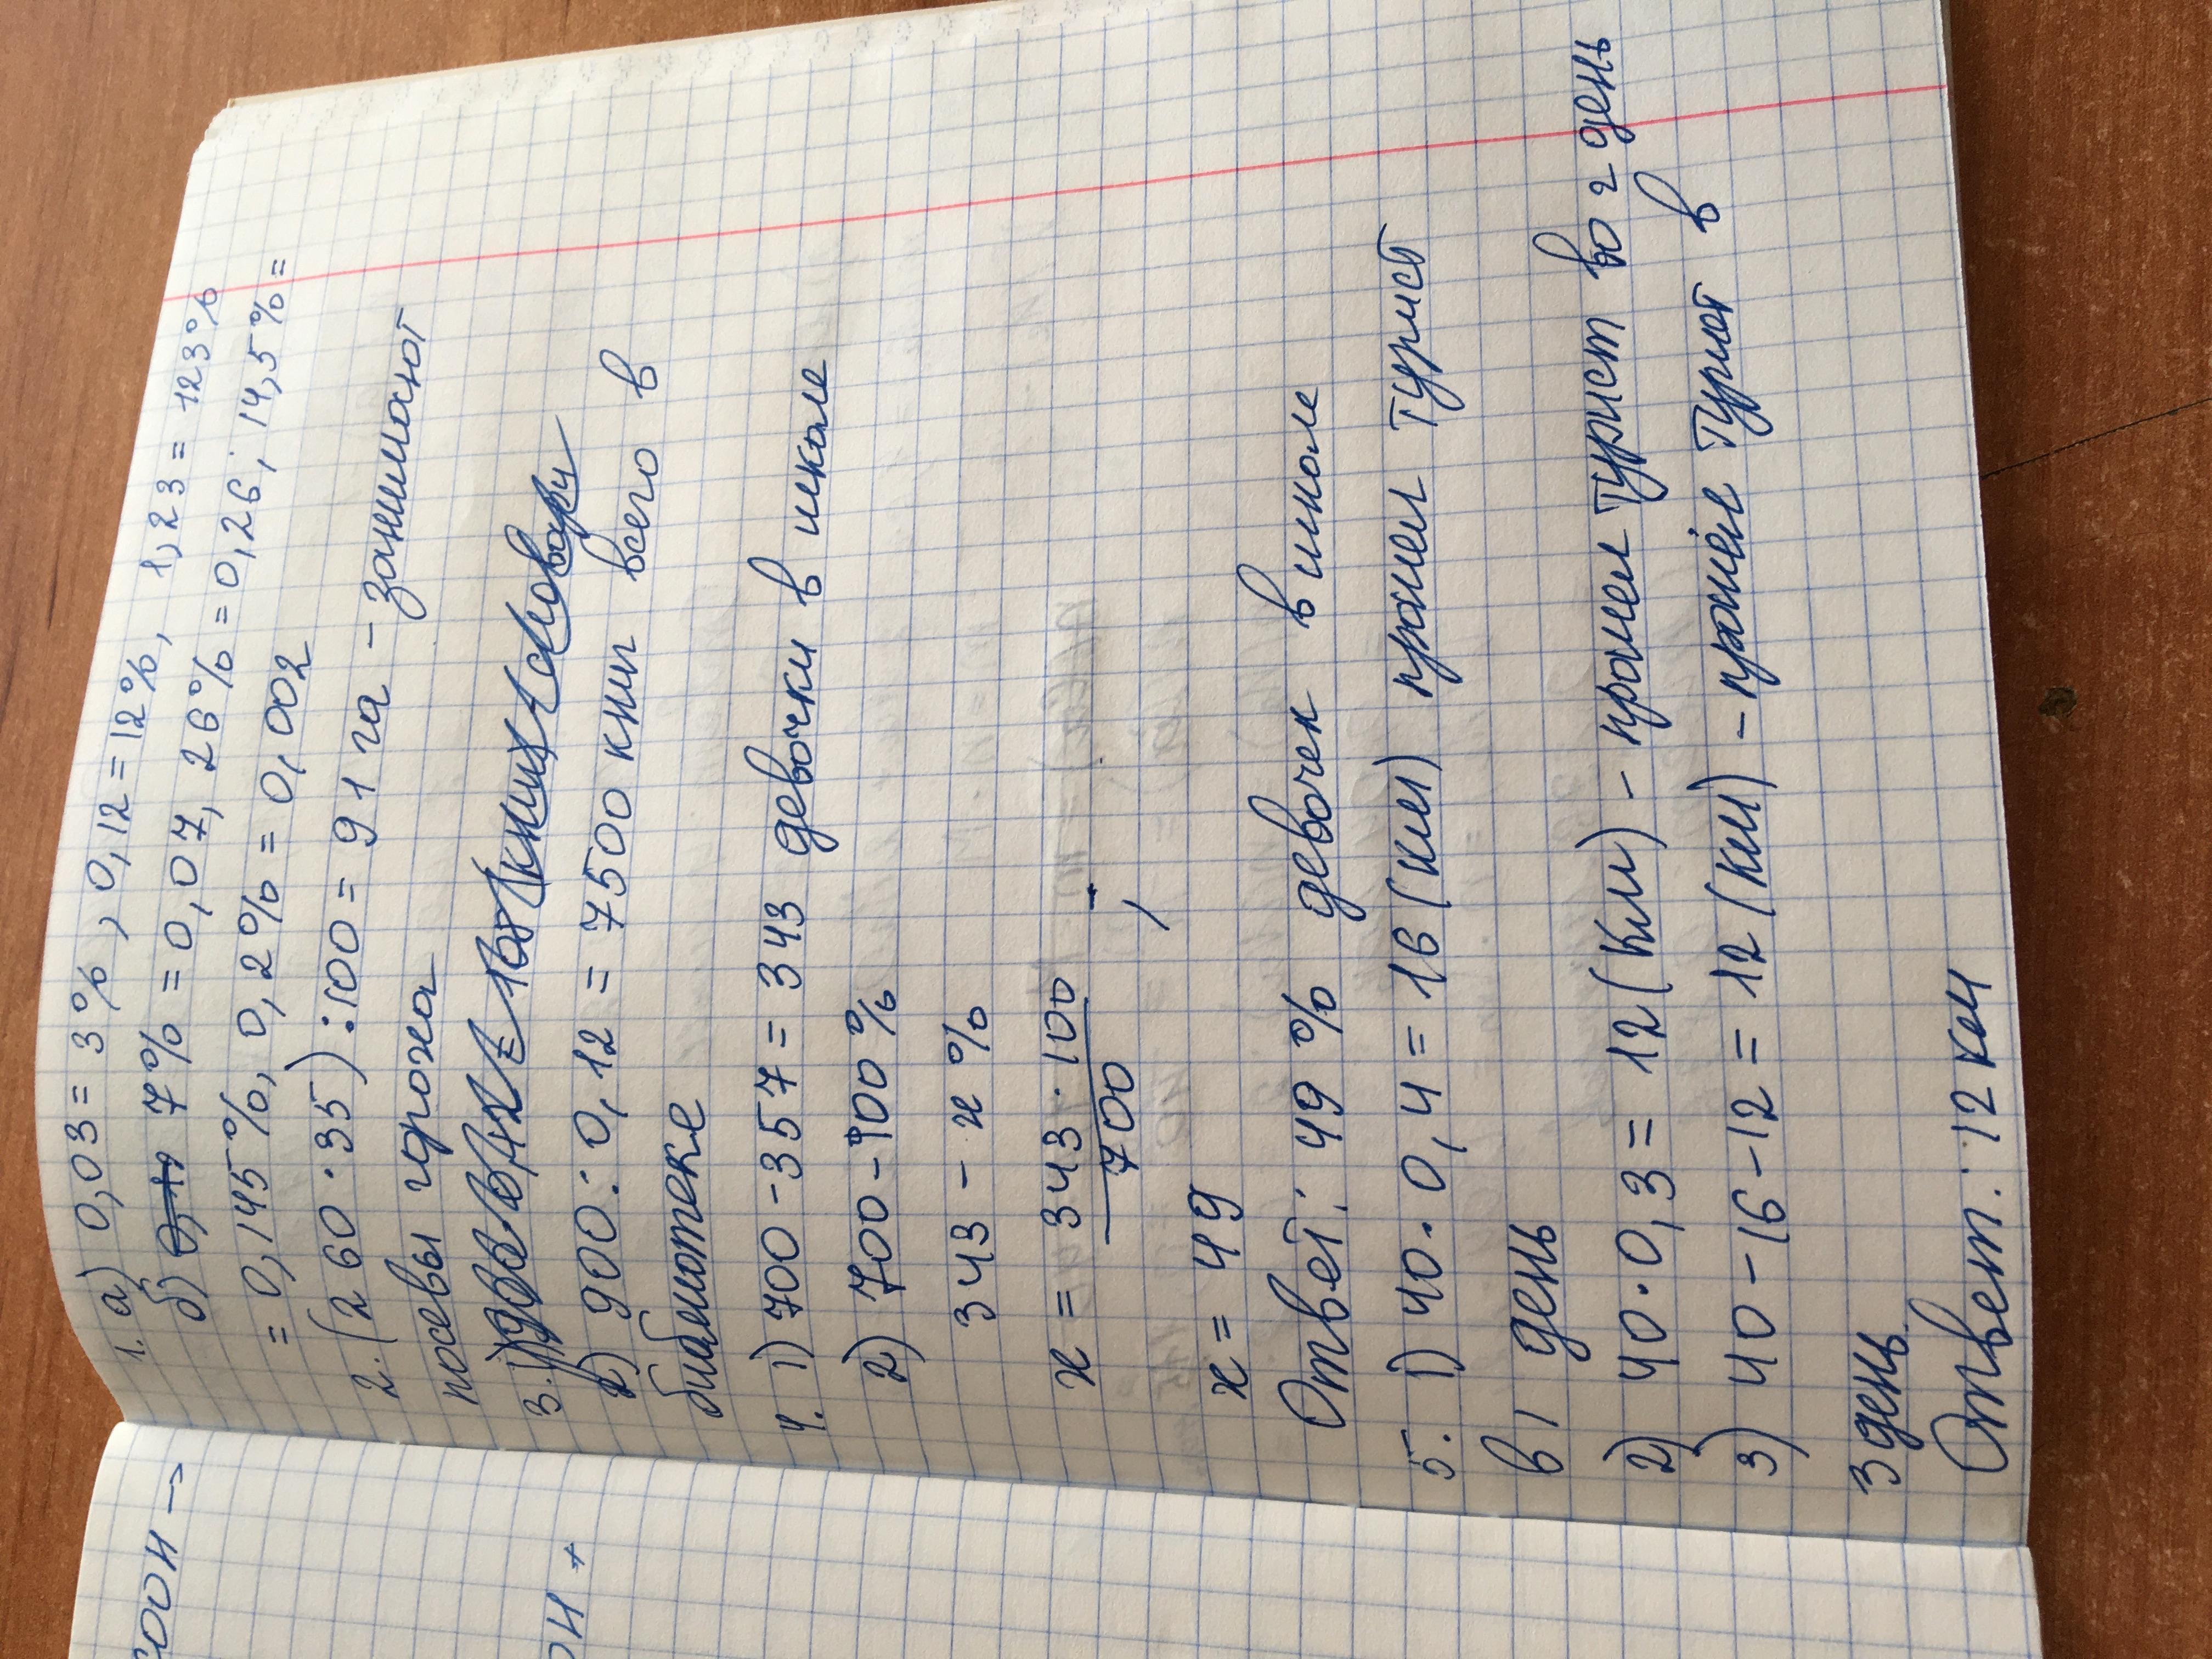 1. а) 0,03 = 3%, 0,12 = 12%, 1,23 = 123%
б) 7% = 0,07, 26% = 0,26, 14,5% =
= 0,145%, 0,2% = 0,002
2. (260 · 35) : 100 = 91 га - занимают
посевы гороха
3.
2) 900 : 0,12 = 7500 книг всего в
библиотеке
4. 1) 700 - 357 = 343 девочки в школе
2) 700 - 100%
343 - x %
x = 343 · 100
7 00
x = 49
Ответ: 49% девочек в школе
5. 1) 40 · 0,4 = 16 (км) прошел турист
в 1 день
2) 40 · 0,3 = 12 (км) - прошел турист во 2 день
3) 40 - 16 - 12 = 12 (км) - прошёл турист в
3 день
Ответ: 12 км